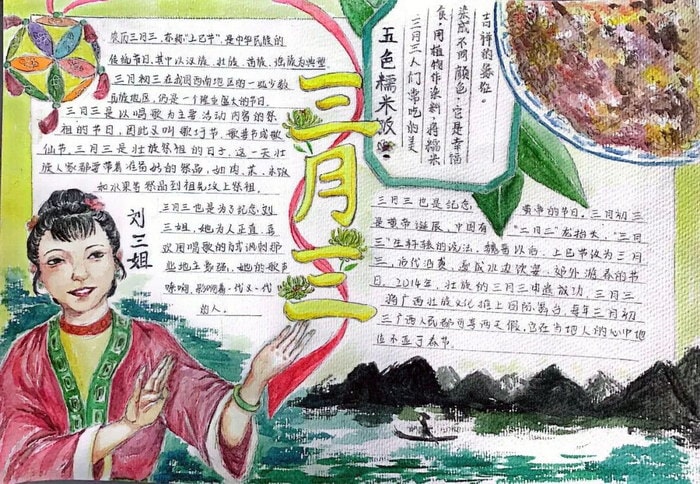 农历三月三,亦称"上巳节",是中华民族的
传统节日,其中以汉族、壮族、苗族、瑶族为典型
三月初三在我国西南地区的一些少数
民族地区,仍是一个隆重盛大的节日。
三月三是以唱歌为主要活动内容的祭
祖的节日,因此又叫歌圩节、歌婆节或歌
仙节。三月三是壮族祭祖的日子。这一天壮
族人家都要带着准备好的祭品,如肉、菜、米饭
和水果等祭品到祖先坟上祭祖。
三月三
五色糯米饭
三月三人们常吃的美
食,用植物作染料,将糯米
染成不同颜色,它是幸福
吉祥的象征。
刘三姐
三月三也是为了纪念刘
三姐,她为人正直,喜
欢用唱歌的方式讽刺那
些地主恶强,她的歌声
嘹响,影响着一代又一代
的人。
三月三也是纪念 黄帝的节日,三月初三
是黄帝诞辰,中国有 "二月二"龙抬头,"三月
三"生轩辕的说法。魏晋以后,上巳节改为三月
三,后代沿袭,变成水边饮宴、郊外游春的节
日。2014年,壮族的三月三申遗成功,三月三
将广西壮族文化推上国际舞台,每年三月初
三广西人民都可享两天假,它在当地人的心中地
位不亚于春节。